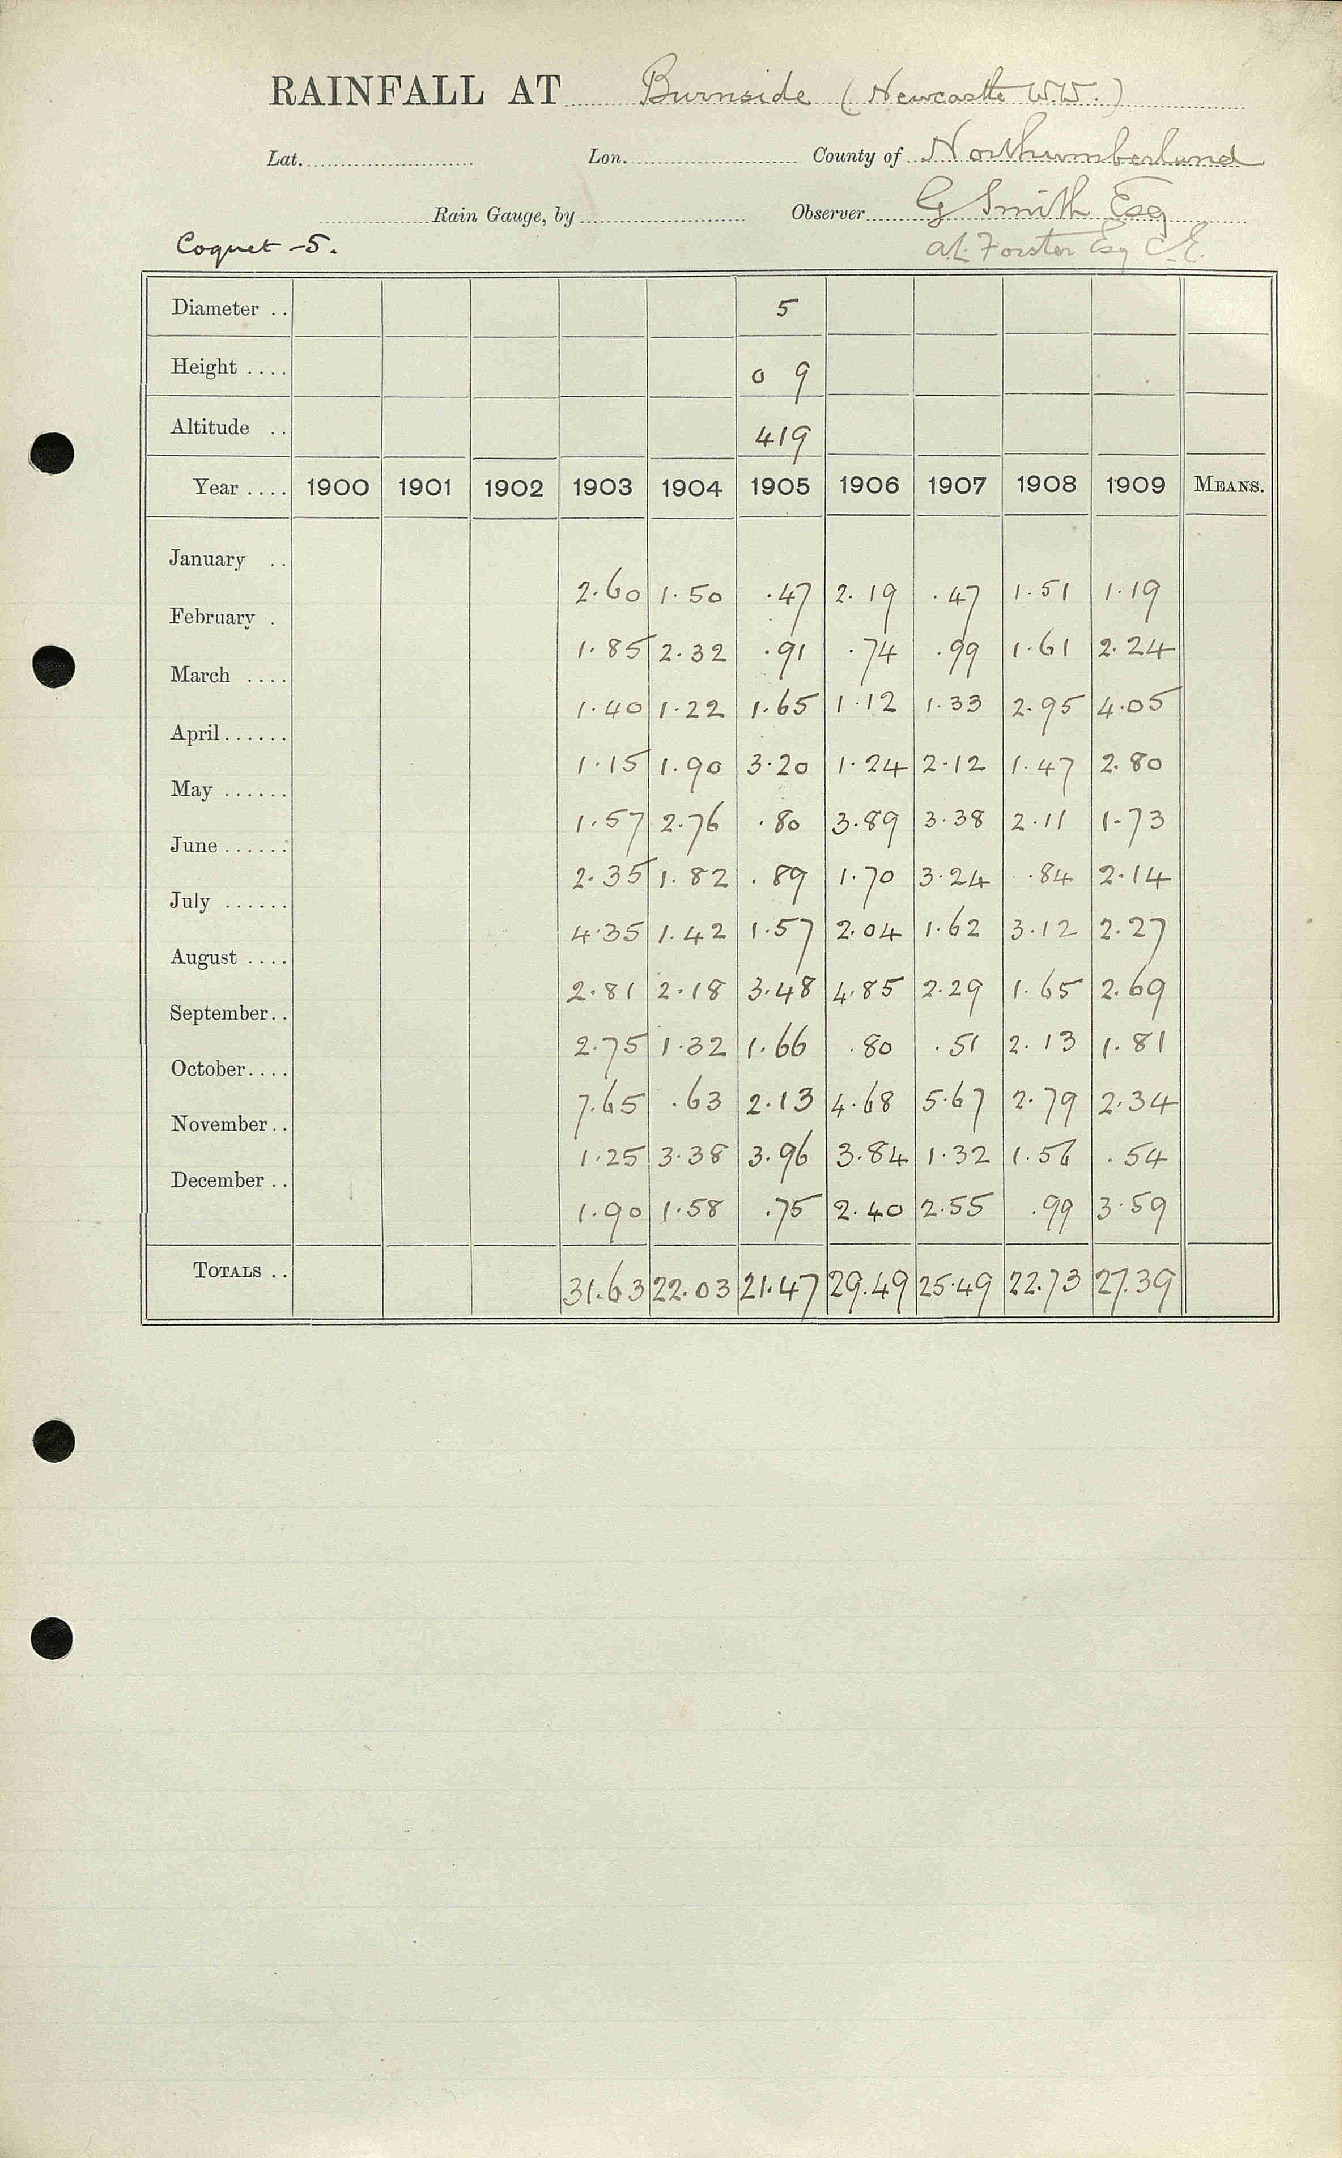 RAINFALL AT Burnside (Newcastle W.W.)
Lat. Lon. County of Northumberland
Rain Gauge, by Observer G Smith Esq
Coquet -5. Forster Esq C.E.
Diameter .. 5
Height .... 0 9
Altitude .. 419
Year .... 1900 1901 1902 1903 1904 1905 1906 1907 1908 1909 MEANS.
January .. 2.60 1.50 .47 2.19 .47 1.51 1.19
February . 1.85 2.32 .91 .74 .99 1.61 2.24
March .... 1.40 1.22 1.65 1.12 1.33 2.95 4.05
April...... 1.15 1.90 3.20 1.24 2.12 1.47 2.80
May ...... 1.57 2.76 .80 3.89 3.38 2.11 1.73
June ...... 2.35 1.82 .89 1.70 3.24 .84 2.14
July ...... 4.35 1.42 1.57 2.04 1.62 3.12 2.27
August .... 2.81 2.18 3.48 4.85 2.29 1.65 2.69
September.. 2.75 1.32 1.66 .80 .51 2.13 1.81
October.... 7.65 .63 2.13 4.68 5.67 2.79 2.34
November.. 1.25 3.38 3.96 3.84 1.32 1.56 .54
December .. 1.90 1.58 .75 2.40 2.55 .99 3.59
TOTALS .. 31.63 22.03 21.47 29.49 25.49 22.73 27.39